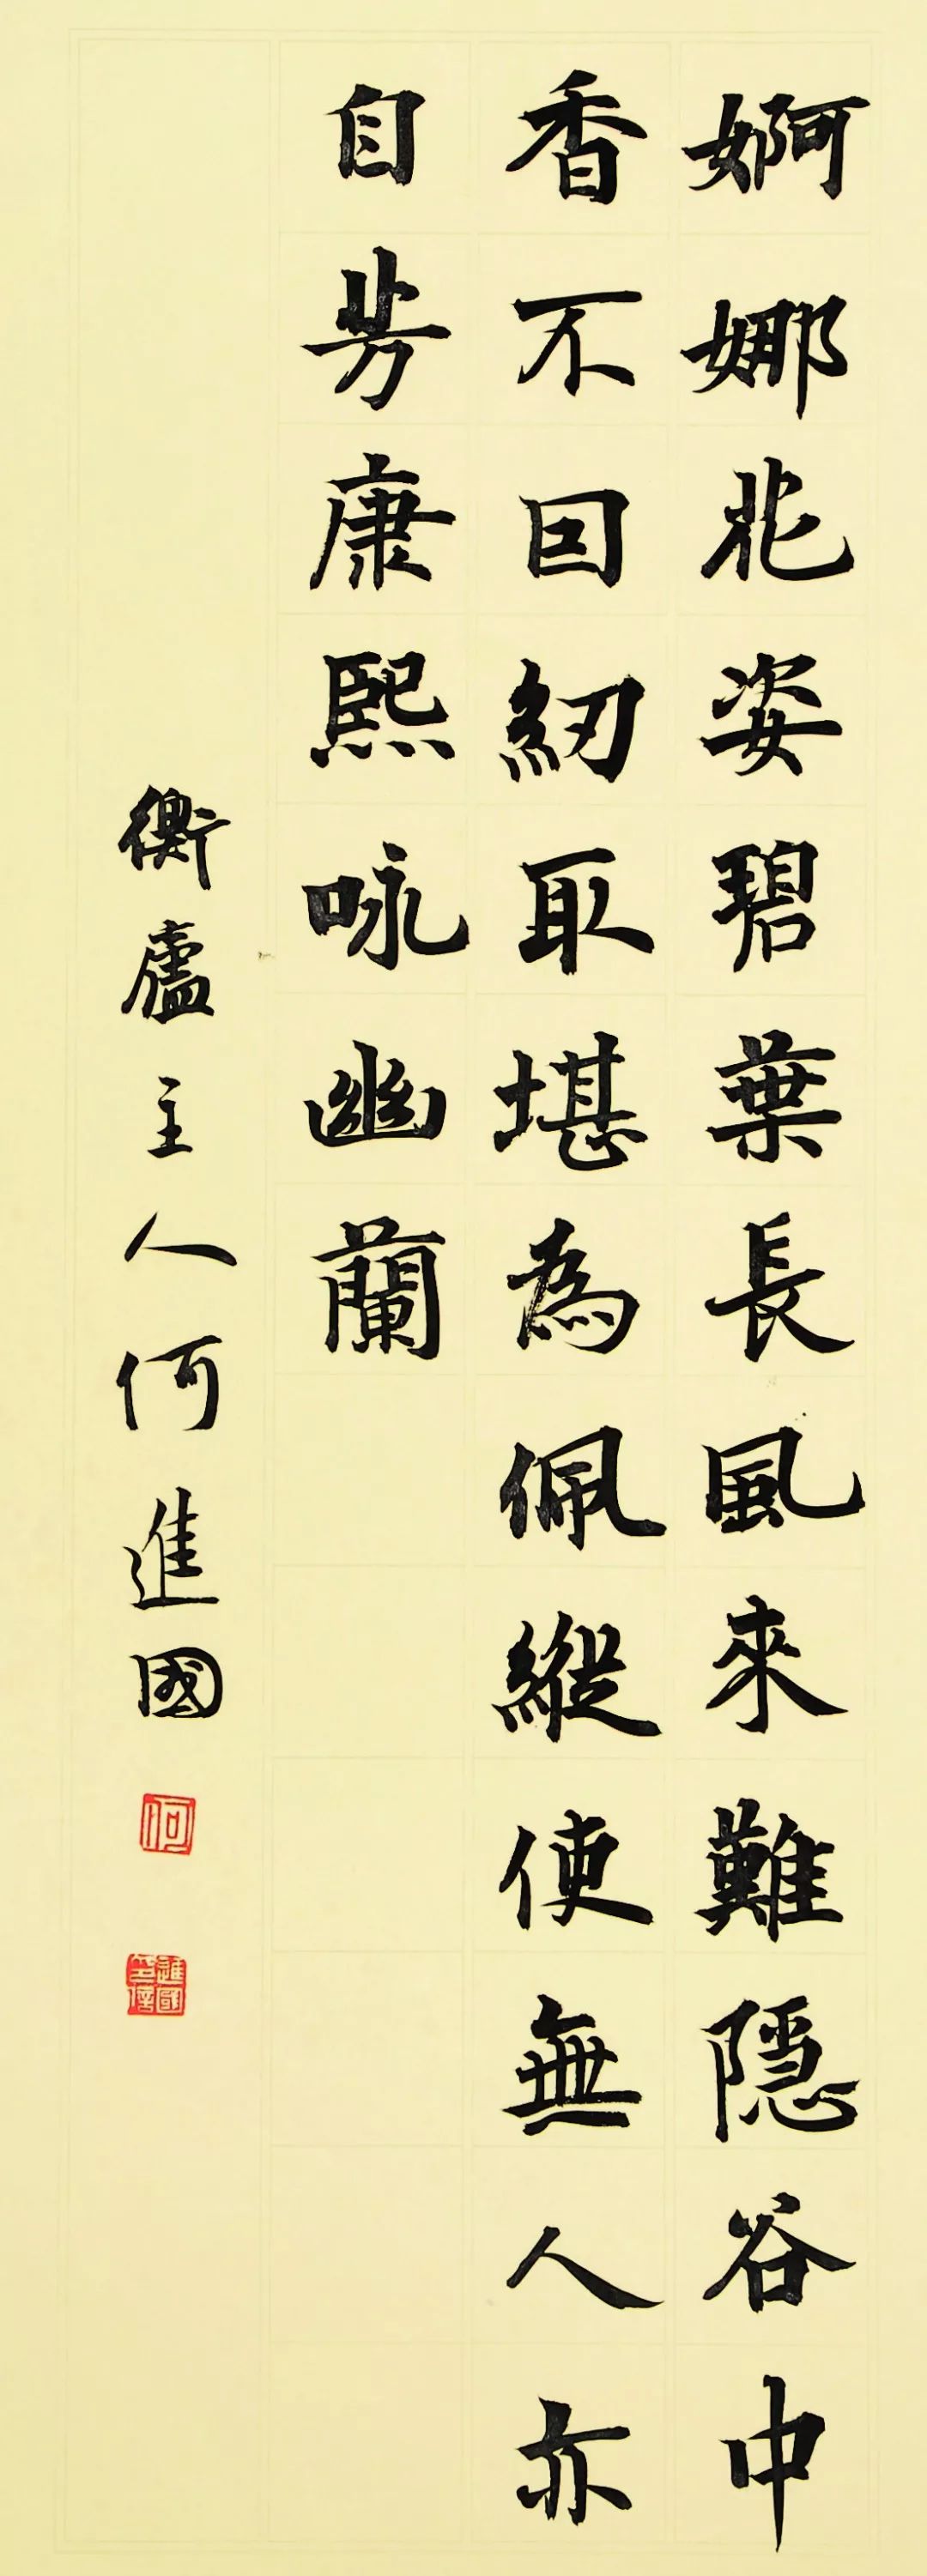 婀娜花姿碧葉長風來難隱谷中
香不因紉取堪為佩縱使無人亦
自芳康熙咏幽蘭
衡廬主人何進國
何
進國印信